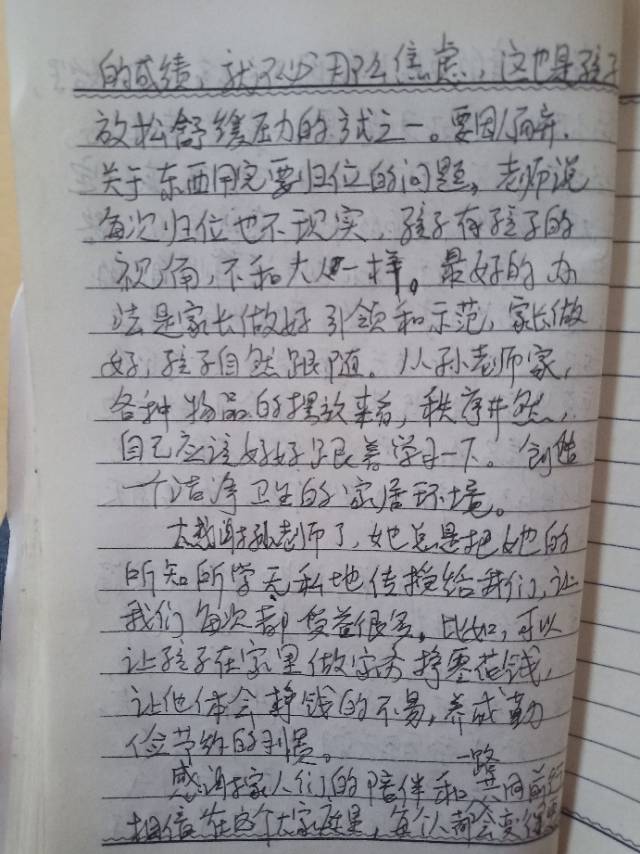 的成绩，就不必那么焦虑，这也是孩子
放松舒缓压力的方式之一。要因人而异．
关于东西用完要归位的问题，老师说
每次归位也不现实，孩子有孩子的
视角，不和大人一样。最好的办
法是家长做好引领和示范，家长做
好，孩子自然跟随。从孙老师家，
各种物品的摆放来看，秩序井然，
自己应该好好跟着学习一下。创造
一个洁净卫生的家居环境。
太感谢孙老师了，她总是把她的
所知所学无私地传授给我们，让
我们每次都受益很多。比如，可以
让孩子在家里做家务挣零花钱，
让他体会挣钱的不易，养成勤
俭节约的习惯。
感谢家人们的陪伴和一路共同前行
相信在这个大家庭里，每个人都会变得